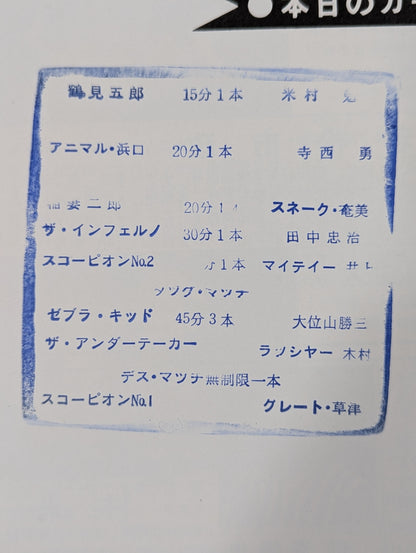 ●本日のカ
鶴見五郎 15分1本 米村 勉
アニマル・浜口 20分1本 寺西 勇
稲妻二郎 20分1 スネーク・奄美
ザ・インフェルノ 30分1本 田中忠治
スコーピオンNo.2 分1本 マイティー 井上
タッグ・マッチ
ゼブラ・キッド 45分3本 大位山勝三
ザ・アンダーテーカー ラッシャー 木村
デス・マッチ無制限一本
スコーピオンNo.1 グレート・草津